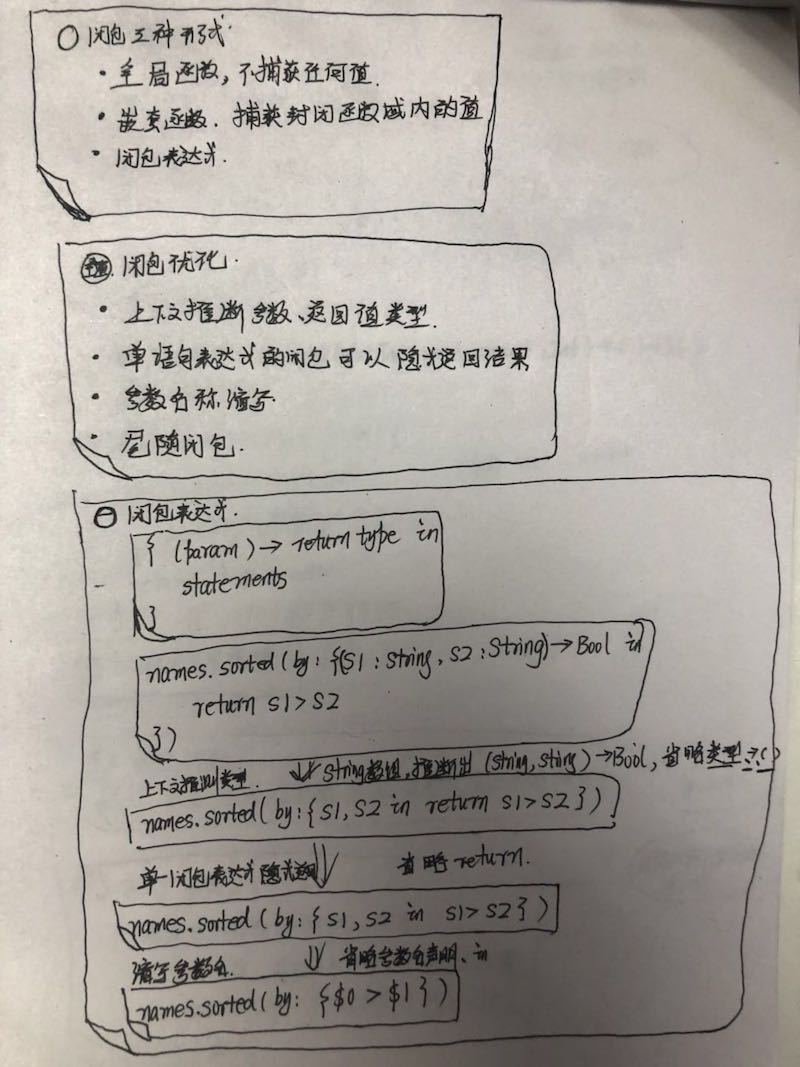 闭包三种形式
· 全局函数，不捕获任何值.
· 嵌套函数. 捕获封闭函数域内的值
· 闭包表达式.
闭包优化.
· 上下文推断参数、返回值类型.
· 单语句表达式的闭包可以隐式返回结果
· 参数名称缩写.
· 尾随闭包.
闭包表达式.
{ (param) → return type in
statements
}
names.sorted(by: {(S1: String, S2: String) → Bool in
return S1 > S2
})
上下文推测类型. String数组, 推断出 (String, String) → Bool, 省略类型、→、()
names.sorted(by: { S1, S2 in return S1 > S2 })
单一闭包表达式隐式返回 省略 return.
names.sorted(by: { S1, S2 in S1 > S2 })
缩写参数名. 省略参数名声明、in
names.sorted(by: { $0 > $1 })